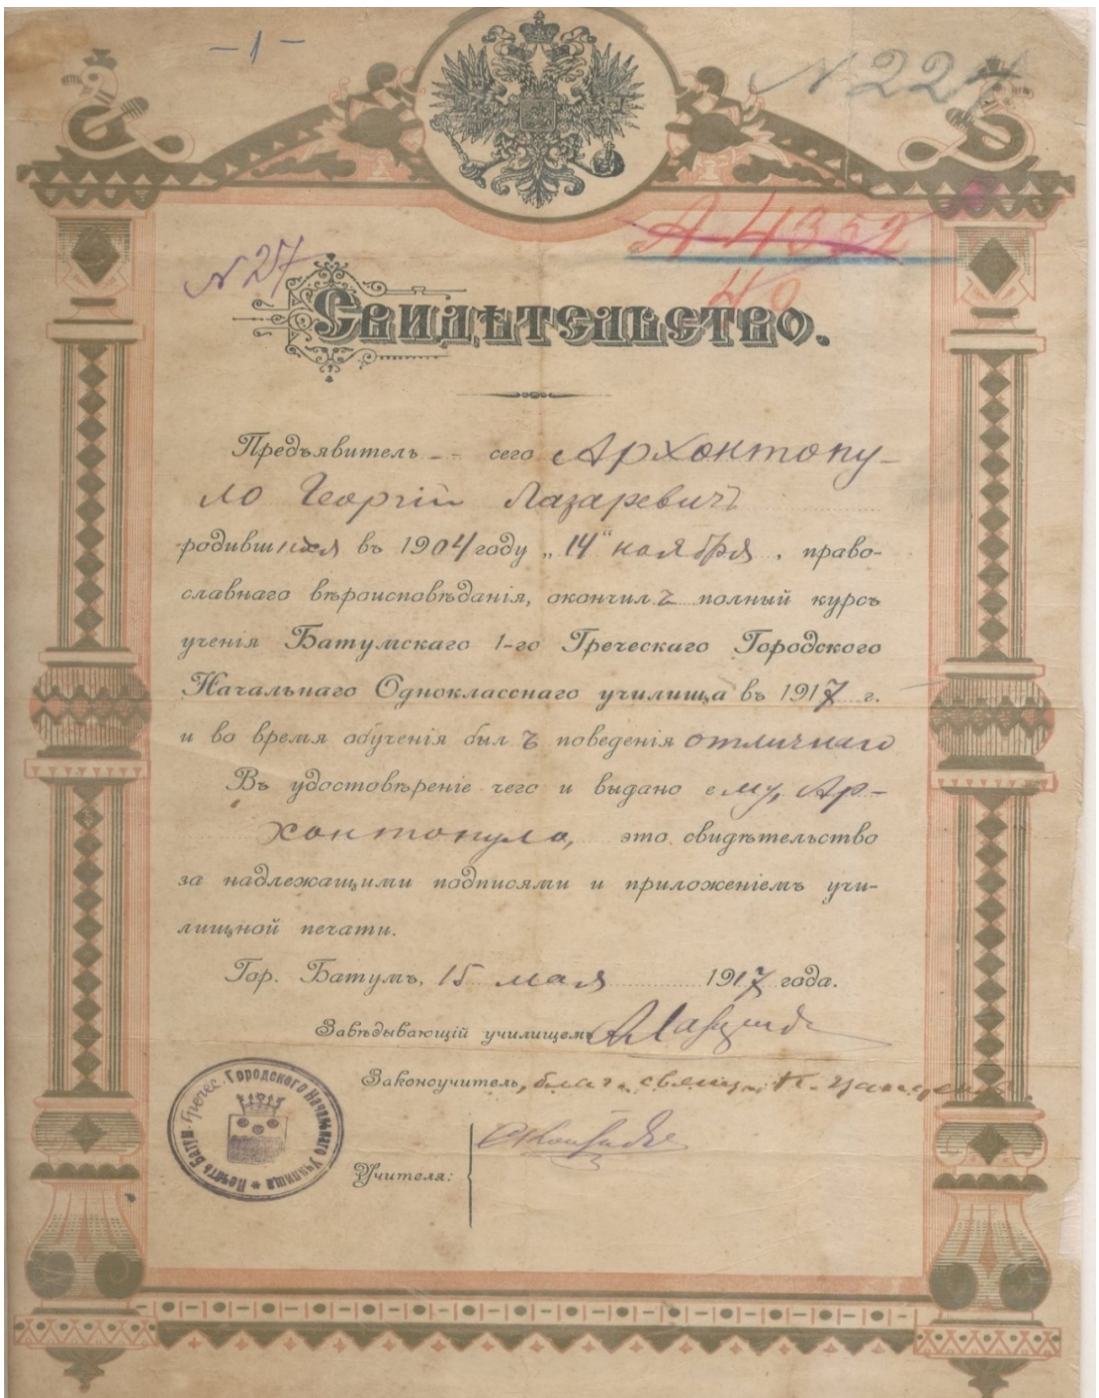 - 1 -
№ 227
А 4352
40
№ 27
Свидѣтельство.
Предъявитель -- сего Архонтопу-
ло Георгій Лазаревичъ
родившійся въ 1904 году „14“ ноября, право-
славнаго вѣроисповѣданія, окончилъ полный курсъ
ученія Батумскаго 1-го Греческаго Городского
Начальнаго Однокласснаго училища въ 1917 г.
и во время обученія былъ поведенія отличнаго
Въ удостовѣреніе чего и выдано ему, Ар-
хонтопуло, это свидѣтельство
за надлежащими подписями и приложеніемъ учи-
лищной печати.
Гор. Батумъ, 15 мая 1917 года.
Завѣдывающій училищемъ
Законоучитель, благ. свящ. К.
Учителя:
Печать Батум. Гречес. Городского Начальнаго Училища